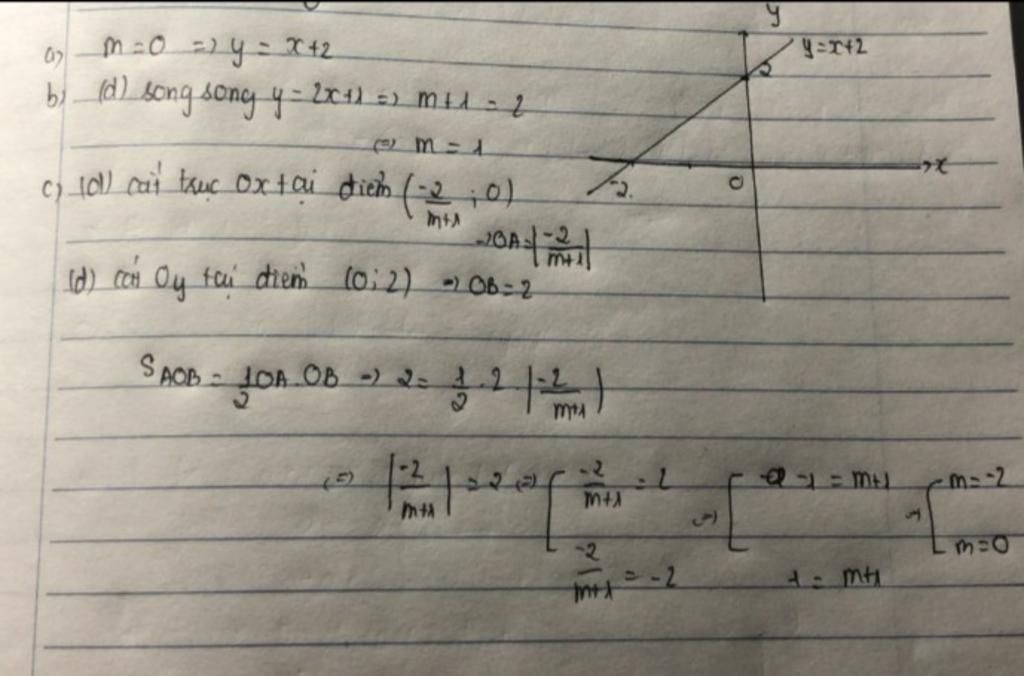 a) m=0 => y = x+2
b) (d) song song y = 2x+1 => m+1 = 2
<=> m = 1
c) (d) cắt trục Ox tại điểm (-2/m+1 ; 0)
→ OA = |-2/m+1|
(d) cắt Oy tại điểm (0;2) → OB = 2
S AOB = 1/2 OA.OB → 2 = 1/2 . 2 . |-2/m+1|
<=> |-2/m+1| = 2 <=> [ -2/m+1 = 2 <=> [ -1 = m+1 <=> [ m = -2
-2/m+1 = -2 1 = m+1 m = 0
y
y = x+2
2
x
-2
0